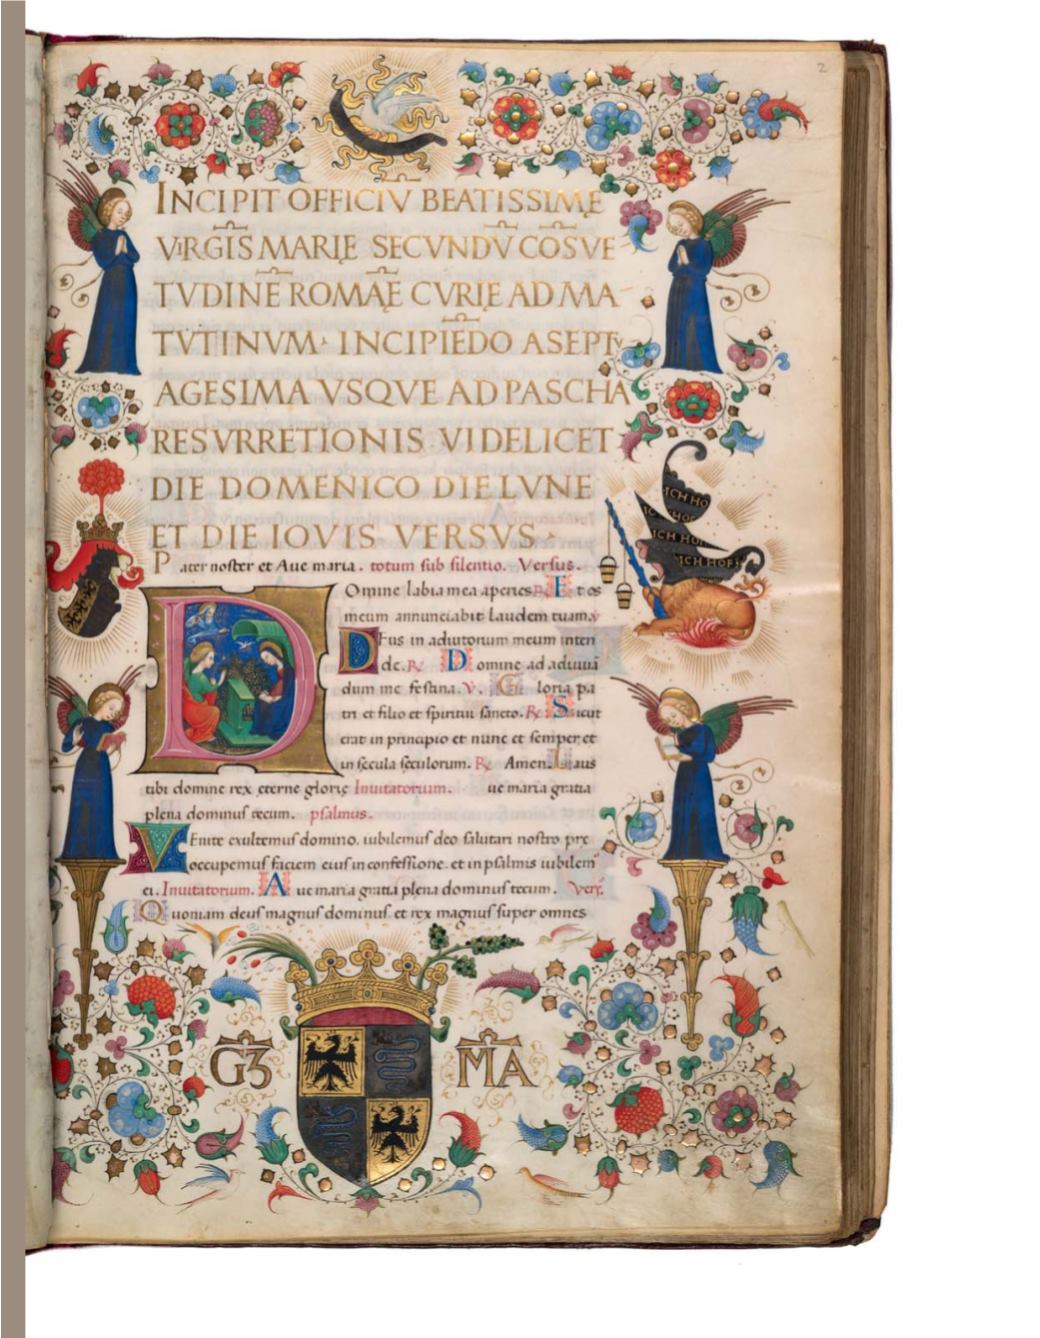 2
INCIPIT OFFICIV̄ BEATISSIMĘ
VIRGĪS MARIĘ SECVNDV̄ COSVE
TVDINĒ ROMĀĘ CVRIĘ AD MA
TVTINVM· INCIPIĒDO ASEPTV
AGESIMA VSQVE AD PASCHA
RESVRRETIONIS VIDELICET
DIE DOMENICO DIE LVNE
ET DIE IOVIS VERSVS·
Pater noster et Aue maria. totum sub silentio. Versus.
Domine labia mea aperies. R Et os
meum annunciabit laudem tuam. v
Deus in adiutorium meum inten
de. R Domine ad adiuuā
dum me festina. V. Gloria pa
tri et filio et spiritui sancto. R Sicut
erat in principio et nunc et semper, et
in secula seculorum. R Amen. Laus
tibi domine rex eterne glorię Inuitatorium. ue maria gratia
plena dominus tecum. psalmus.
Venite exultemus domino. iubilemus deo salutari nostro pre
occupemus faciem eius in confessione. et in psalmis iubilem
ei. Inuitatorium. Aue maria gratia plena dominus tecum. Vers.
Quoniam deus magnus dominus. et rex magnus super omnes
ICH HO
ICH HOF
ICH HOF
ICH HOF
GZ MA